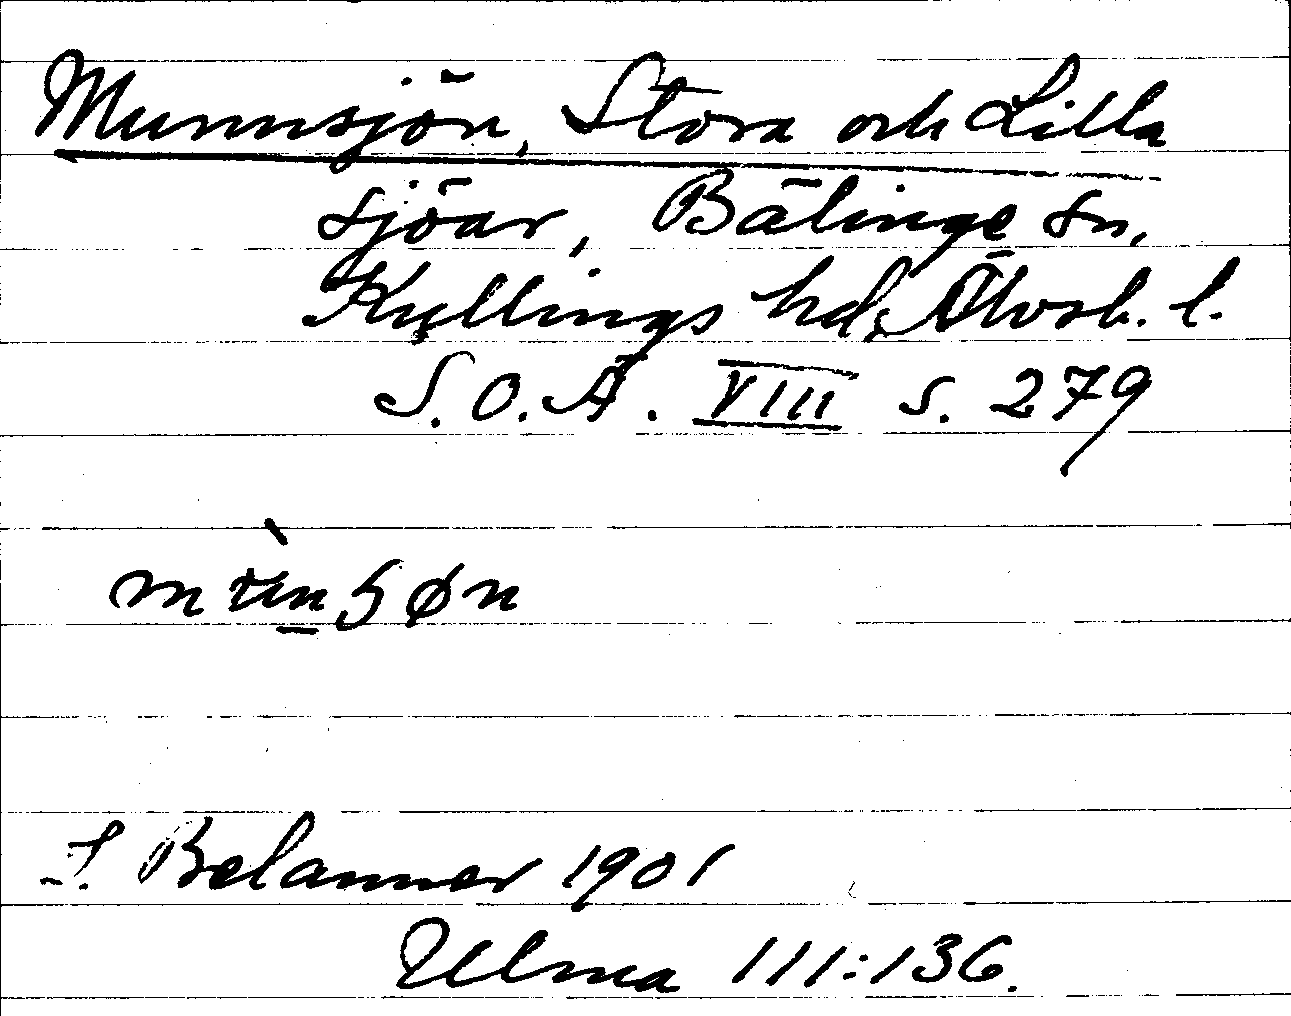 Munnsjön, Stora och Lilla
sjöar, Bälinge sn,
Kullings hd, Älvsb. l.
S.O.Ä. VIII s. 279
Belanner 1901
Ulma 111:136.